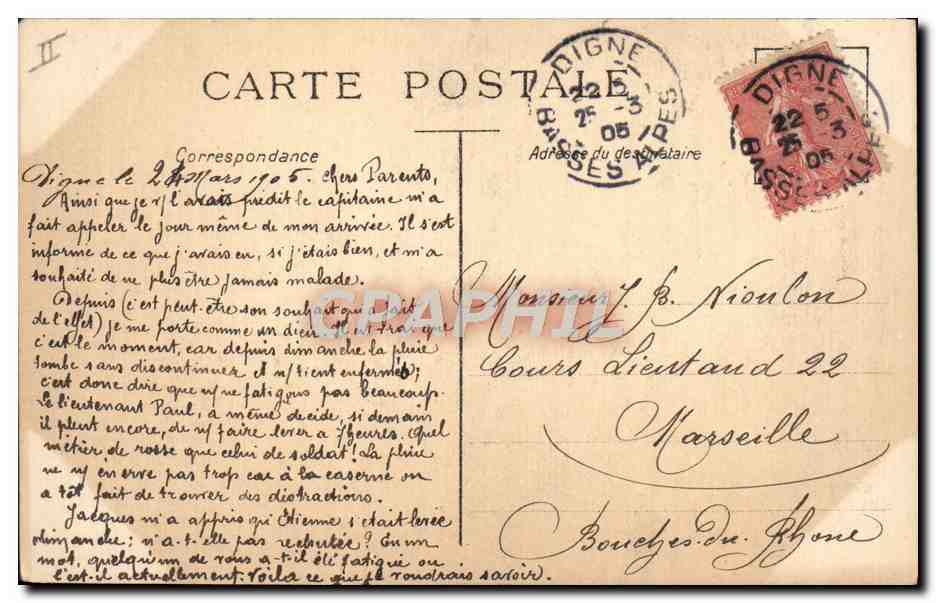 II
CARTE POSTALE
DIGNE
22 5
25 -3
05
BASSES ALPES
DIGNE
22 5
25 -3
05
BASSES ALPES
Correspondance
Adresse du destinataire
Digne le 24 Mars 1905. Chers Parents,
Ainsi que je v/ l'avais prédit le capitaine m'a
fait appeler le jour même de mon arrivée. Il s'est
informé de ce que j'avais eu, si j'étais bien, et m'a
souhaité de ne plus être jamais malade.
Depuis (c'est peut-être son souhait qui a fait
de l'effet) je me porte comme un dieu. Il est vrai que
c'est le moment, car depuis dimanche la pluie
tombe sans discontinuer et n/ tient enfermés;
c'est donc dire que n/ ne fatigons pas beaucoup.
Le lieutenant Paul, a même décidé, si demain
il pleut encore, de n/ faire lever à 7 heures. Quel
métier de rosse que celui de soldat! La pluie
ne n/ énerve pas trop car à la caserne on
a tôt fait de trouver des distractions.
Jacques m'a appris qu'Etienne s'était levée
dimanche; n'a-t-elle pas rechutée? En un
mot, quelqu'un de vous a-t-il été fatigué ou
l'est-il actuellement. Voilà ce que je voudrais savoir.
Monsieur J. B. Nioulon
Cours Lieutaud 22
Marseille
Bouches-du-Rhone
CPAPHIL